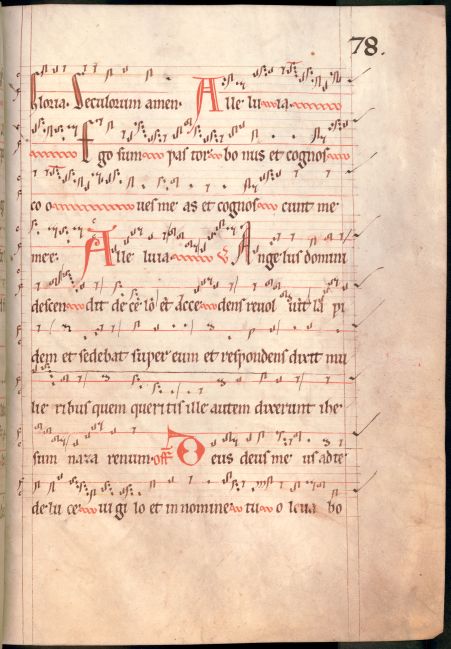 78.
Gloria. Seculorum amen. Alle lu ia
Ego sum pas tor bo nus et cognos
co o ues me as et cognos cunt me
me e. Alle luia Ange lus domini
descen dit de ce lo et acce dens reuol uit la pi
dem et sedebat super eum et respondens dixit mu
lie ribus quem queritis ille autem dixerunt ihe
sum naza renum. off Deus deus me us ad te
de lu ce ui gi lo et in nomine tu o leua bo